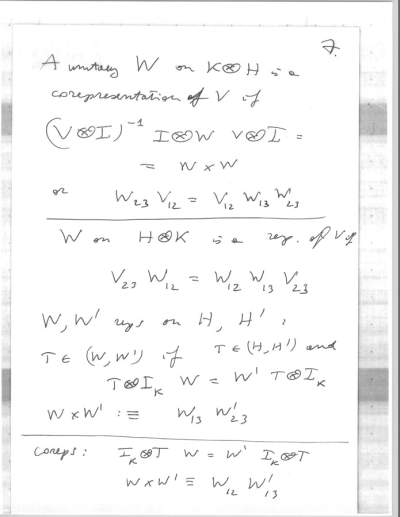 7.
A unitary W on K⊗H is a
corepresentation of V if
(V⊗I)⁻¹ I⊗W V⊗I =
= W × W
or W₂₃ V₁₂ = V₁₂ W₁₃ W₂₃
W on H⊗K is a rep. of V if
V₂₃ W₁₂ = W₁₂ W₁₃ V₂₃
W, W' reps on H, H' :
T ∈ (W, W') if T ∈ (H, H') and
T⊗I_K W = W' T⊗I_K
W × W' : ≡ W₁₃ W'₂₃
coreps: I_K⊗T W = W' I_K⊗T
W × W' ≡ W₁₂ W'₁₃